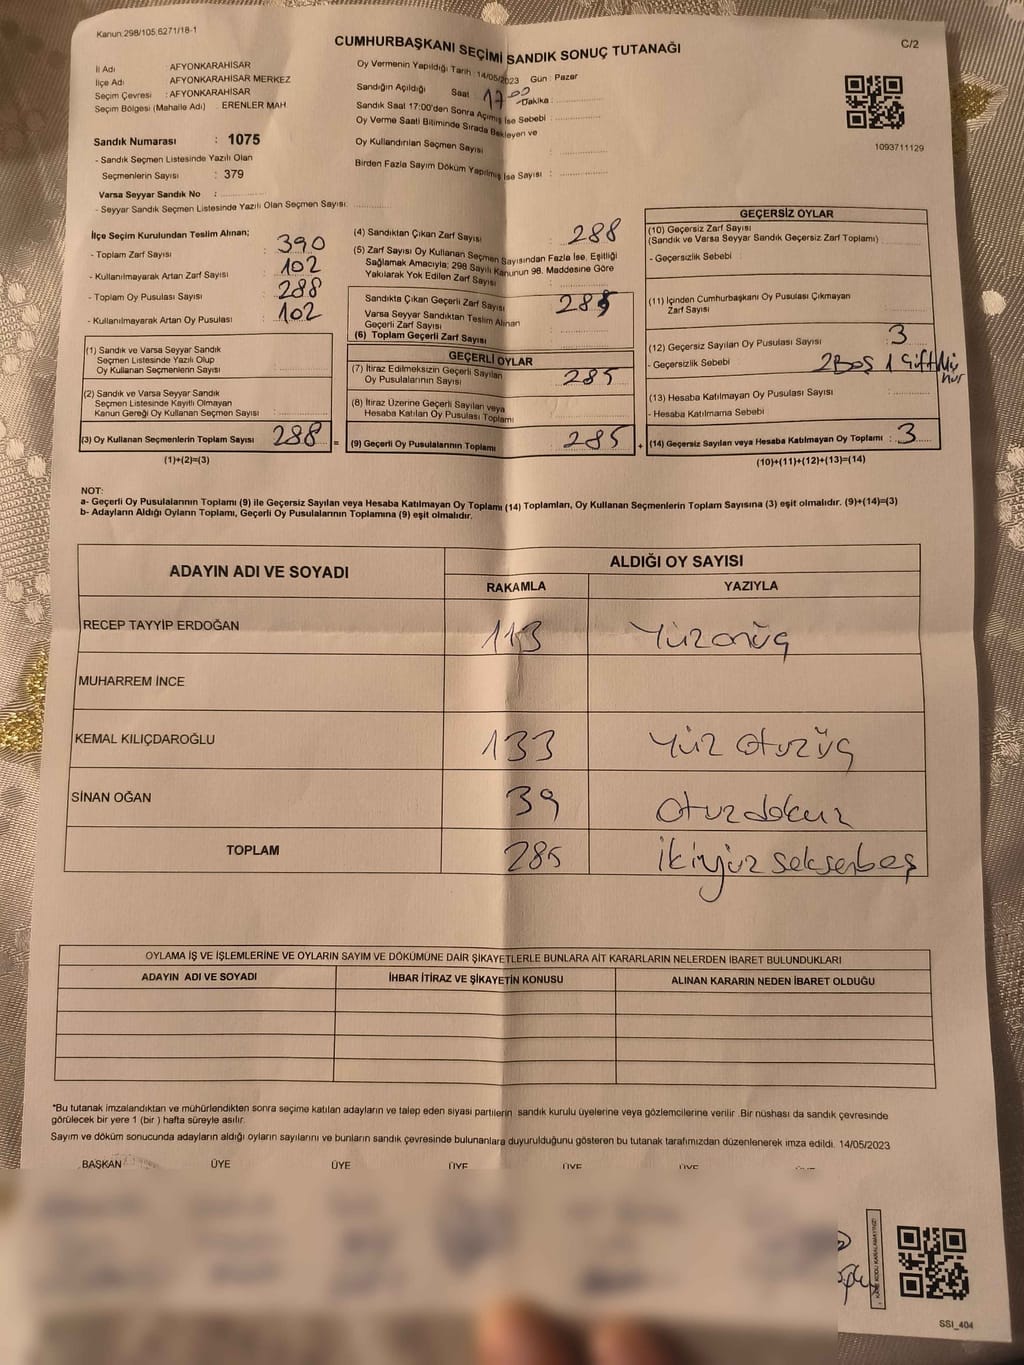 Kanun:298/105,6271/18-1
CUMHURBAŞKANI SEÇİMİ SANDIK SONUÇ TUTANAĞI
C/2
İl Adı : AFYONKARAHİSAR
İlçe Adı : AFYONKARAHİSAR MERKEZ
Seçim Çevresi : AFYONKARAHİSAR
Seçim Bölgesi (Mahalle Adı) : ERENLER MAH
Oy Vermenin Yapıldığı Tarih : 14/05/2023 Gün : Pazar
Sandığın Açıldığı Saat 17 00 Dakika :
Sandık Saat 17:00'den Sonra Açılmış İse Sebebi :
Oy Verme Saati Bitiminde Sırada Bekleyen ve
Oy Kullandırılan Seçmen Sayısı :
Birden Fazla Sayım Döküm Yapılmış İse Sayısı :
1093711129
Sandık Numarası : 1075
- Sandık Seçmen Listesinde Yazılı Olan
Seçmenlerin Sayısı : 379
Varsa Seyyar Sandık No :
- Seyyar Sandık Seçmen Listesinde Yazılı Olan Seçmen Sayısı:
İlçe Seçim Kurulundan Teslim Alınan;
- Toplam Zarf Sayısı : 390
- Kullanılmayarak Artan Zarf Sayısı : 102
- Toplam Oy Pusulası Sayısı : 288
- Kullanılmayarak Artan Oy Pusulası : 102
(1) Sandık ve Varsa Seyyar Sandık
Seçmen Listesinde Yazılı Olup
Oy Kullanan Seçmenlerin Sayısı :
(2) Sandık ve Varsa Seyyar Sandık
Seçmen Listesinde Kayıtlı Olmayan
Kanun Gereği Oy Kullanan Seçmen Sayısı :
(3) Oy Kullanan Seçmenlerin Toplam Sayısı : 288 =
(1)+(2)=(3)
(4) Sandıktan Çıkan Zarf Sayısı : 288
(5) Zarf Sayısı Oy Kullanan Seçmen Sayısından Fazla İse, Eşitliği
Sağlamak Amacıyla; 298 Sayılı Kanunun 98. Maddesine Göre
Yakılarak Yok Edilen Zarf Sayısı :
Sandıkta Çıkan Geçerli Zarf Sayısı : 285
Varsa Seyyar Sandıktan Teslim Alınan
Geçerli Zarf Sayısı :
(6) Toplam Geçerli Zarf Sayısı
GEÇERLİ OYLAR
(7) İtiraz Edilmeksizin Geçerli Sayılan
Oy Pusulalarının Sayısı : 285
(8) İtiraz Üzerine Geçerli Sayılan veya
Hesaba Katılan Oy Pusulası Toplamı :
(9) Geçerli Oy Pusulalarının Toplamı : 285 +
GEÇERSİZ OYLAR
(10) Geçersiz Zarf Sayısı
(Sandık ve Varsa Seyyar Sandık Geçersiz Zarf Toplamı) :
- Geçersizlik Sebebi :
(11) İçinden Cumhurbaşkanı Oy Pusulası Çıkmayan
Zarf Sayısı :
(12) Geçersiz Sayılan Oy Pusulası Sayısı : 3
- Geçersizlik Sebebi : 2 Boş 1 Çift Mühür
(13) Hesaba Katılmayan Oy Pusulası Sayısı :
- Hesaba Katılmama Sebebi :
(14) Geçersiz Sayılan veya Hesaba Katılmayan Oy Toplamı : 3
(10)+(11)+(12)+(13)=(14)
NOT:
a- Geçerli Oy Pusulalarının Toplamı (9) ile Geçersiz Sayılan veya Hesaba Katılmayan Oy Toplamı (14) Toplamları, Oy Kullanan Seçmenlerin Toplam Sayısına (3) eşit olmalıdır. (9)+(14)=(3)
b- Adayların Aldığı Oyların Toplamı, Geçerli Oy Pusulalarının Toplamına (9) eşit olmalıdır.
ADAYIN ADI VE SOYADI
ALDIĞI OY SAYISI
RAKAMLA YAZIYLA
RECEP TAYYİP ERDOĞAN 113 Yüzonüç
MUHARREM İNCE
KEMAL KILIÇDAROĞLU 133 Yüz otuzüç
SİNAN OĞAN 39 Otuzdokuz
TOPLAM 285 İkiyüz seksenbeş
OYLAMA İŞ VE İŞLEMLERİNE VE OYLARIN SAYIM VE DÖKÜMÜNE DAİR ŞİKAYETLERLE BUNLARA AİT KARARLARIN NELERDEN İBARET BULUNDUKLARI
ADAYIN ADI VE SOYADI İHBAR İTİRAZ VE ŞİKAYETİN KONUSU ALINAN KARARIN NEDEN İBARET OLDUĞU
*Bu tutanak imzalandıktan ve mühürlendikten sonra seçime katılan adayların ve talep eden siyasi partilerin sandık kurulu üyelerine veya gözlemcilerine verilir. Bir nüshası da sandık çevresinde
görülecek bir yere 1 (bir) hafta süreyle asılır.
Sayım ve döküm sonucunda adayların aldığı oyların sayılarını ve bunların sandık çevresinde bulunanlara duyurulduğunu gösteren bu tutanak tarafımızdan düzenlenerek imza edildi. 14/05/2023
BAŞKAN ÜYE ÜYE ÜYE ÜYE ÜYE
KARE KODU KARALAMAYINIZ!
SSI_404